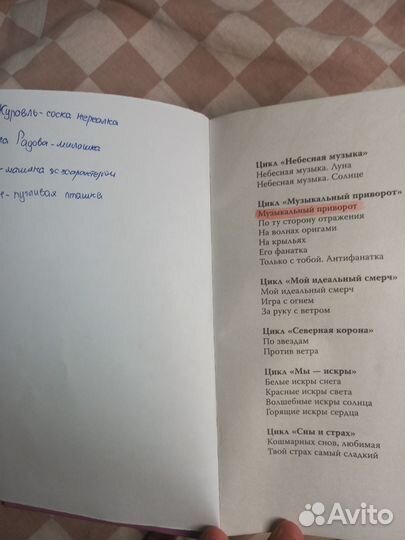 Журавль - соска нереалка
Радова - милашка
- машина с характером
- пугливая пташка
Цикл «Небесная музыка»
Небесная музыка. Луна
Небесная музыка. Солнце
Цикл «Музыкальный приворот»
Музыкальный приворот
По ту сторону отражения
На волнах оригами
На крыльях
Его фанатка
Только с тобой. Антифанатка
Цикл «Мой идеальный смерч»
Мой идеальный смерч
Игра с огнем
За руку с ветром
Цикл «Северная корона»
По звездам
Против ветра
Цикл «Мы — искры»
Белые искры снега
Красные искры света
Волшебные искры солнца
Горящие искры сердца
Цикл «Сны и страх»
Кошмарных снов, любимая
Твой страх самый сладкий
Avito